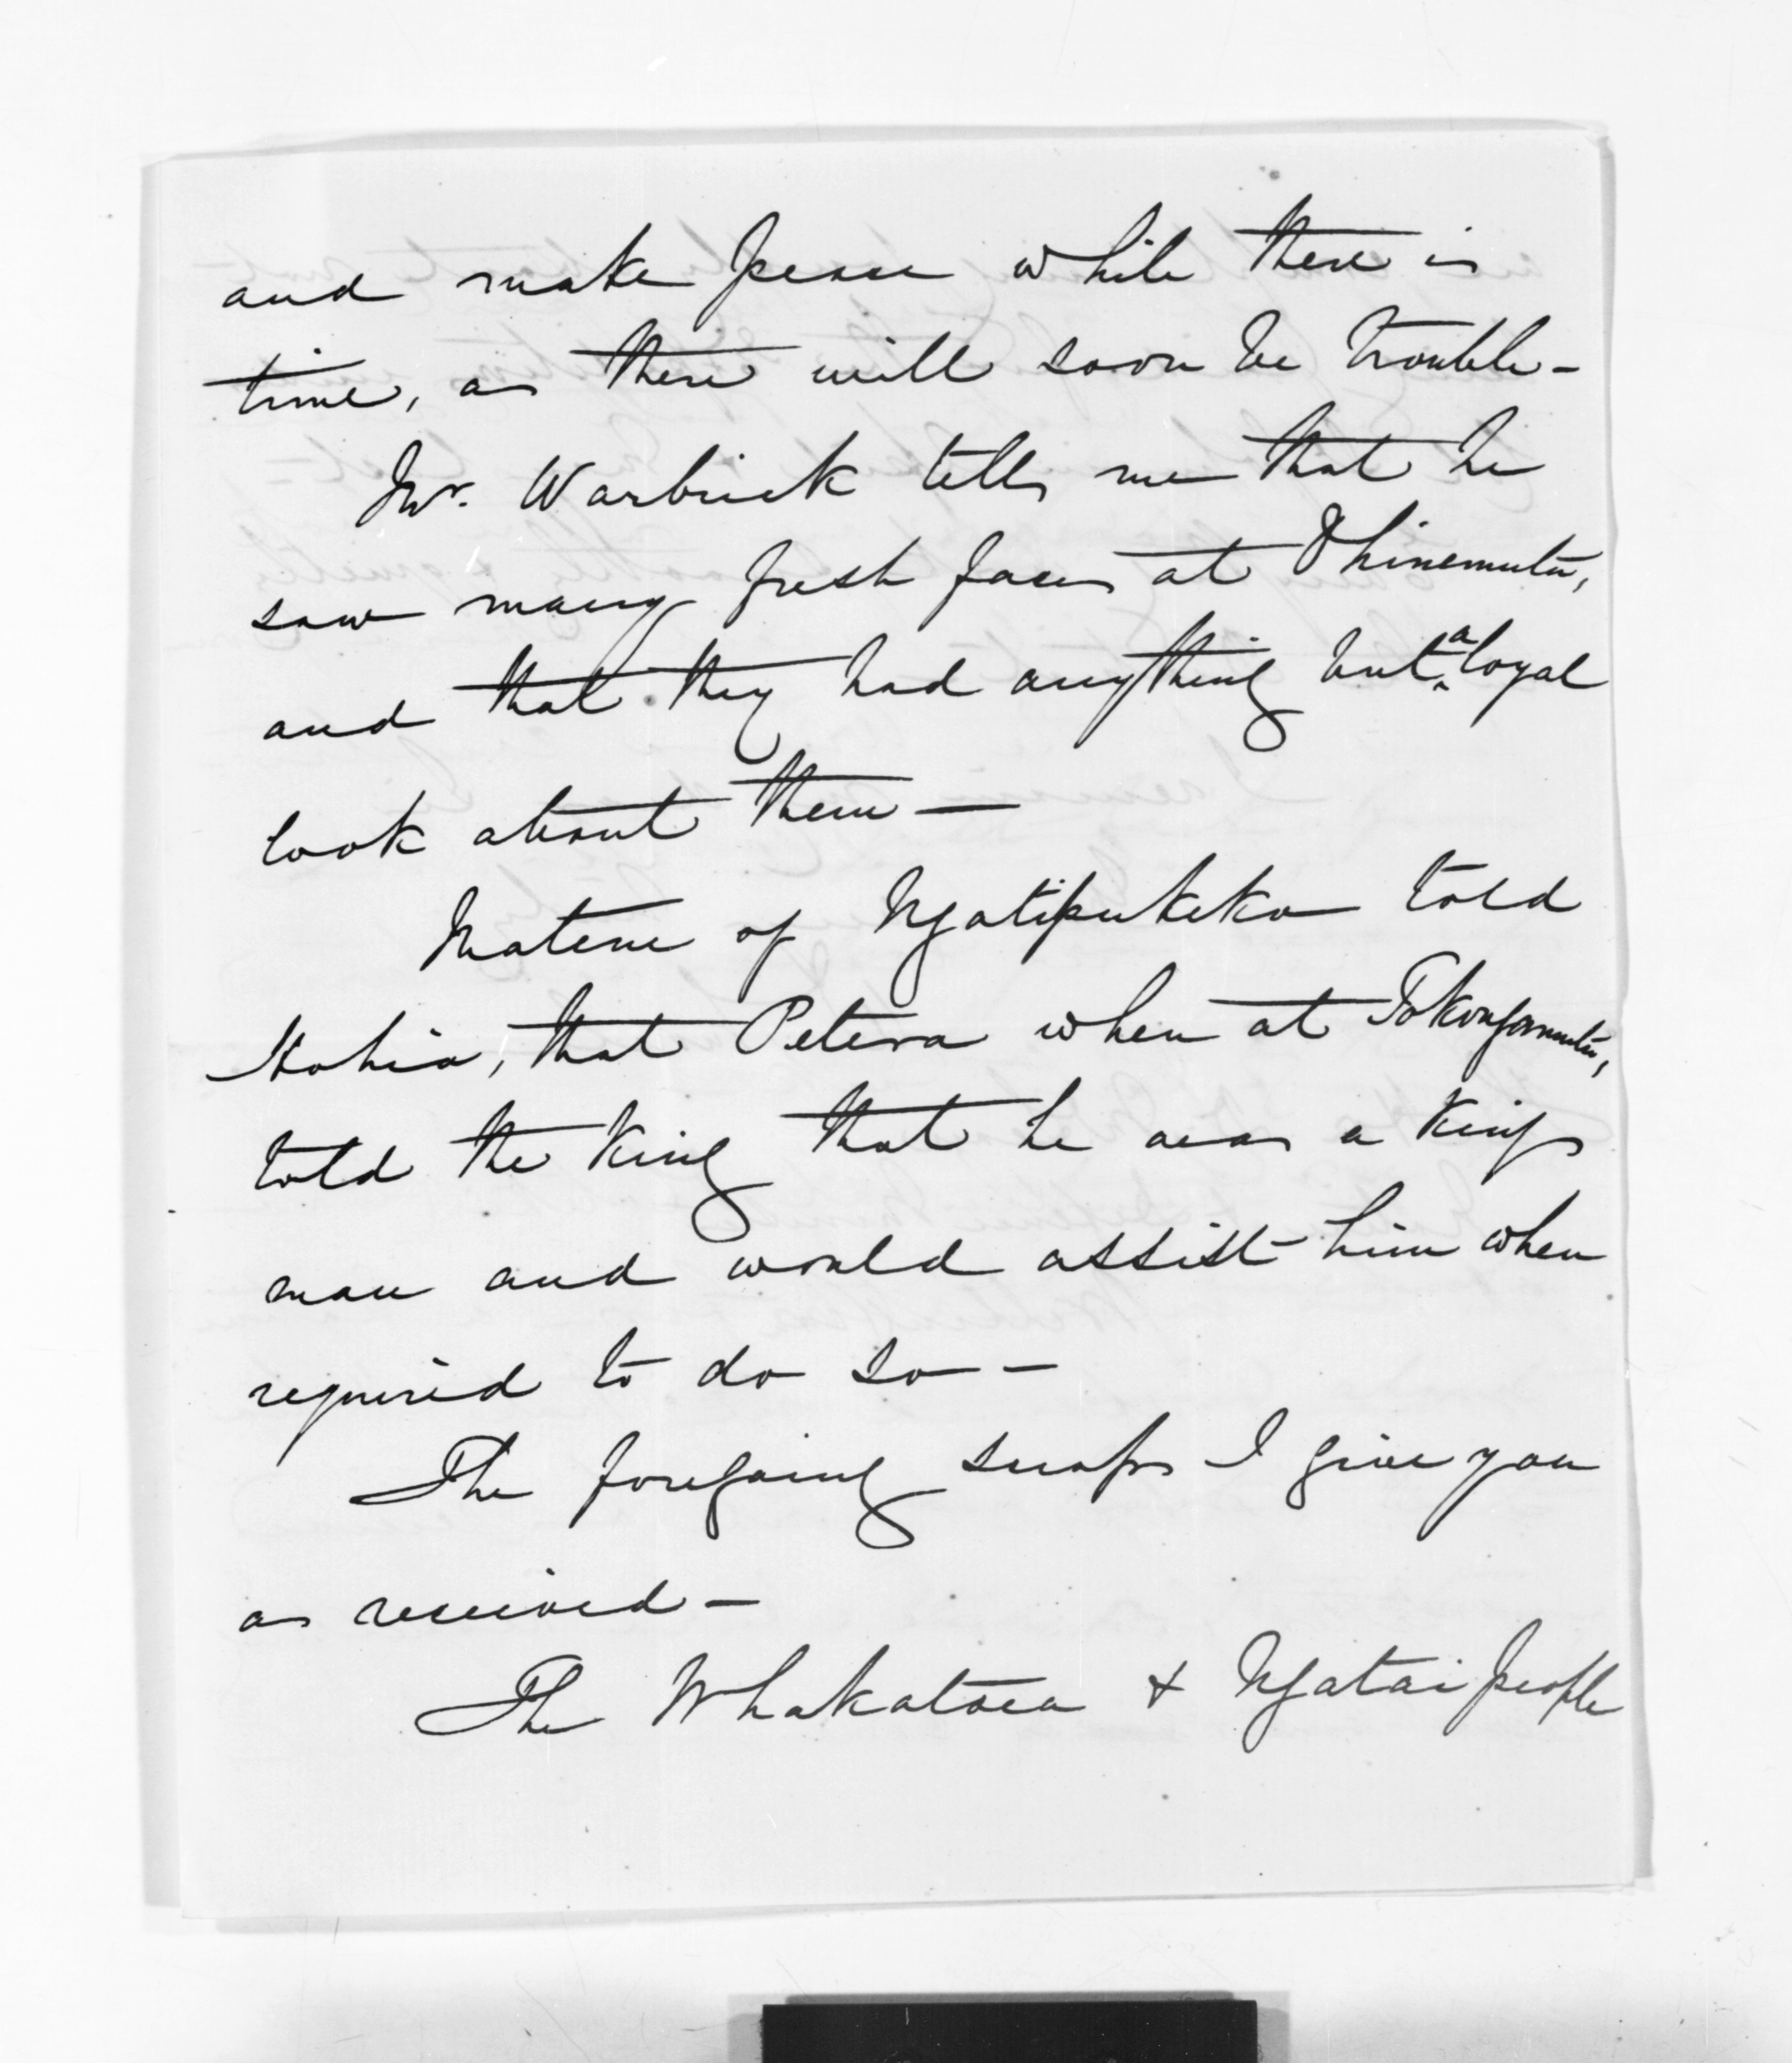 and make peace while there is
time, as there will soon be trouble -
Mr. Warbrick tells me that he
saw many fresh faces at Ohinemutu,
and that they had anything but a loyal
look about them —
Matene of Ngatipukeko told
Hohia, that Petera when at Tokangamutu,
told the King that he was a Kings
man and would assist him when
required to do so -
The foregoing scraps I give you
as received -
The Whakatoea & Ngatai people